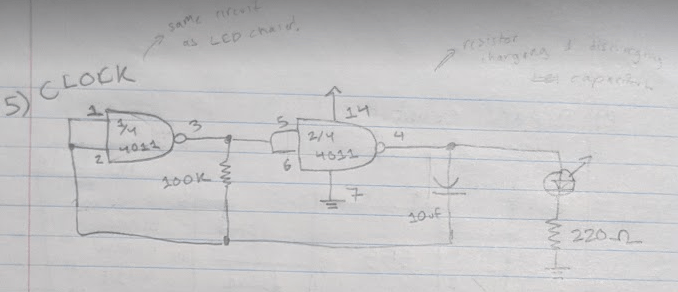 same circuit
as LED chain.
resistor
charging & discharging
capacitor.
5) CLOCK
1
2
1/4
4011
3
100K
5
6
2/4
4011
14
7
4
10uF
220Ω